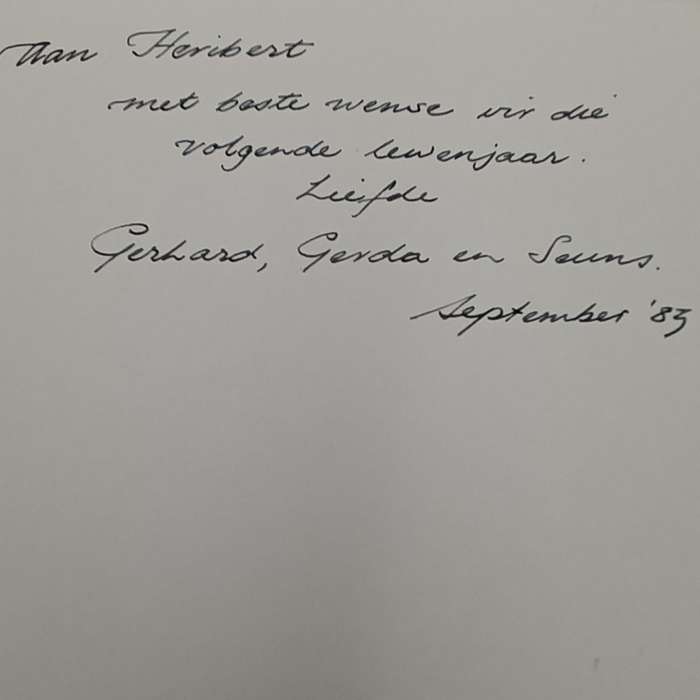 Aan Heribert
met beste wense vir die
volgende lewenjaar.
Liefde
Gerhard, Gerda en Seuns.
September '83